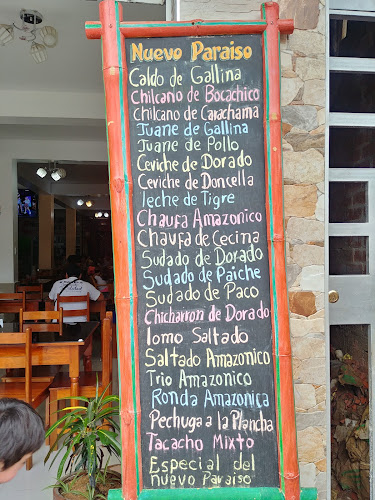 Nuevo Paraiso
Caldo de Gallina
Chilcano de Bocachico
Chilcano de Carachama
Juane de Gallina
Juane de Pollo
Ceviche de Dorado
Ceviche de Doncella
leche de Tigre
Chaufa Amazonico
Chaufa de Cecina
Sudado de Dorado
Sudado de Paiche
Sudado de Paco
Chicharron de Dorado
lomo Saltado
Saltado Amazonico
Trio Amazonico
Ronda Amazonica
Pechuga a la Plancha
Tacacho Mixto
Especial del
nuevo Paraiso